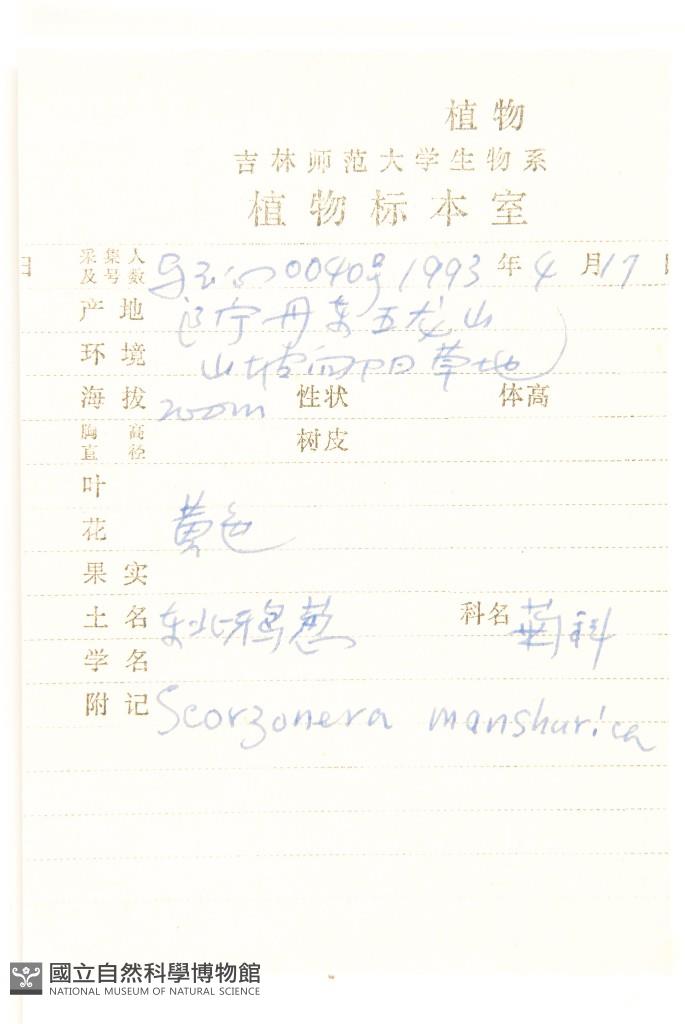 植物
吉林师范大学生物系
植物标本室
日 采集人及号数 0040号 1993 年 4 月 17 日
产地 辽宁丹东五龙山
环境 山坡向阳草地
海拔 200m 性状 体高
胸高直径 树皮
叶
花 黄色
果实
土名 东北鸦葱 科名 菊科
学名
附记 Scorzonera manshurica
國立自然科學博物館
NATIONAL MUSEUM OF NATURAL SCIENCE